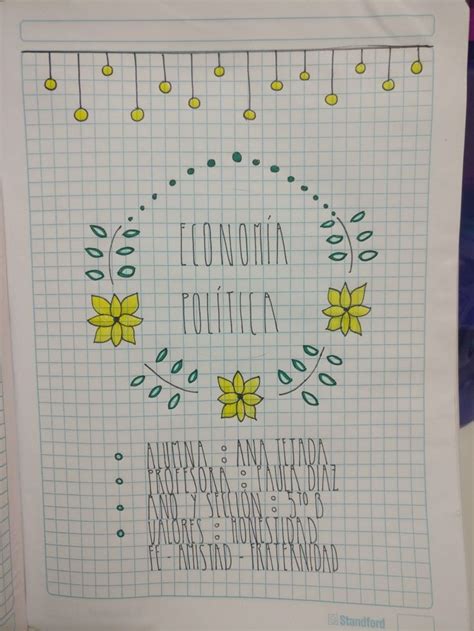 ECONOMÍA
POLÍTICA
ALUMNA : ANA TEJADA
PROFESORA : PAULA DÍAZ
AÑO Y SECCIÓN : 5TO B
VALORES : HONESTIDAD
FE - AMISTAD - FRATERNIDAD
Standford